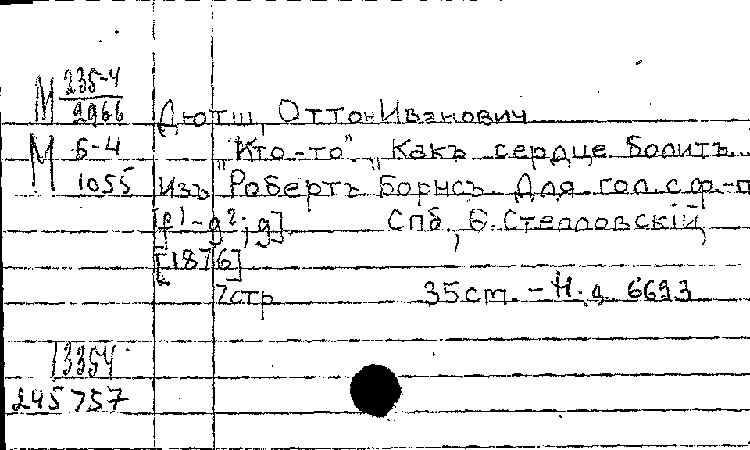 М 235-4
2966
Дютш, Оттон Иванович
М 6-4
1055
"Кто-то". "Какъ сердце болитъ..
Изъ Робертъ Борнсъ. Для гол. с ф.-п
[f¹-g²; g]. Спб., Ѳ. Стелловскій,
[1876]
7 стр 35 cm. - Н. д. 6693
13354
245757